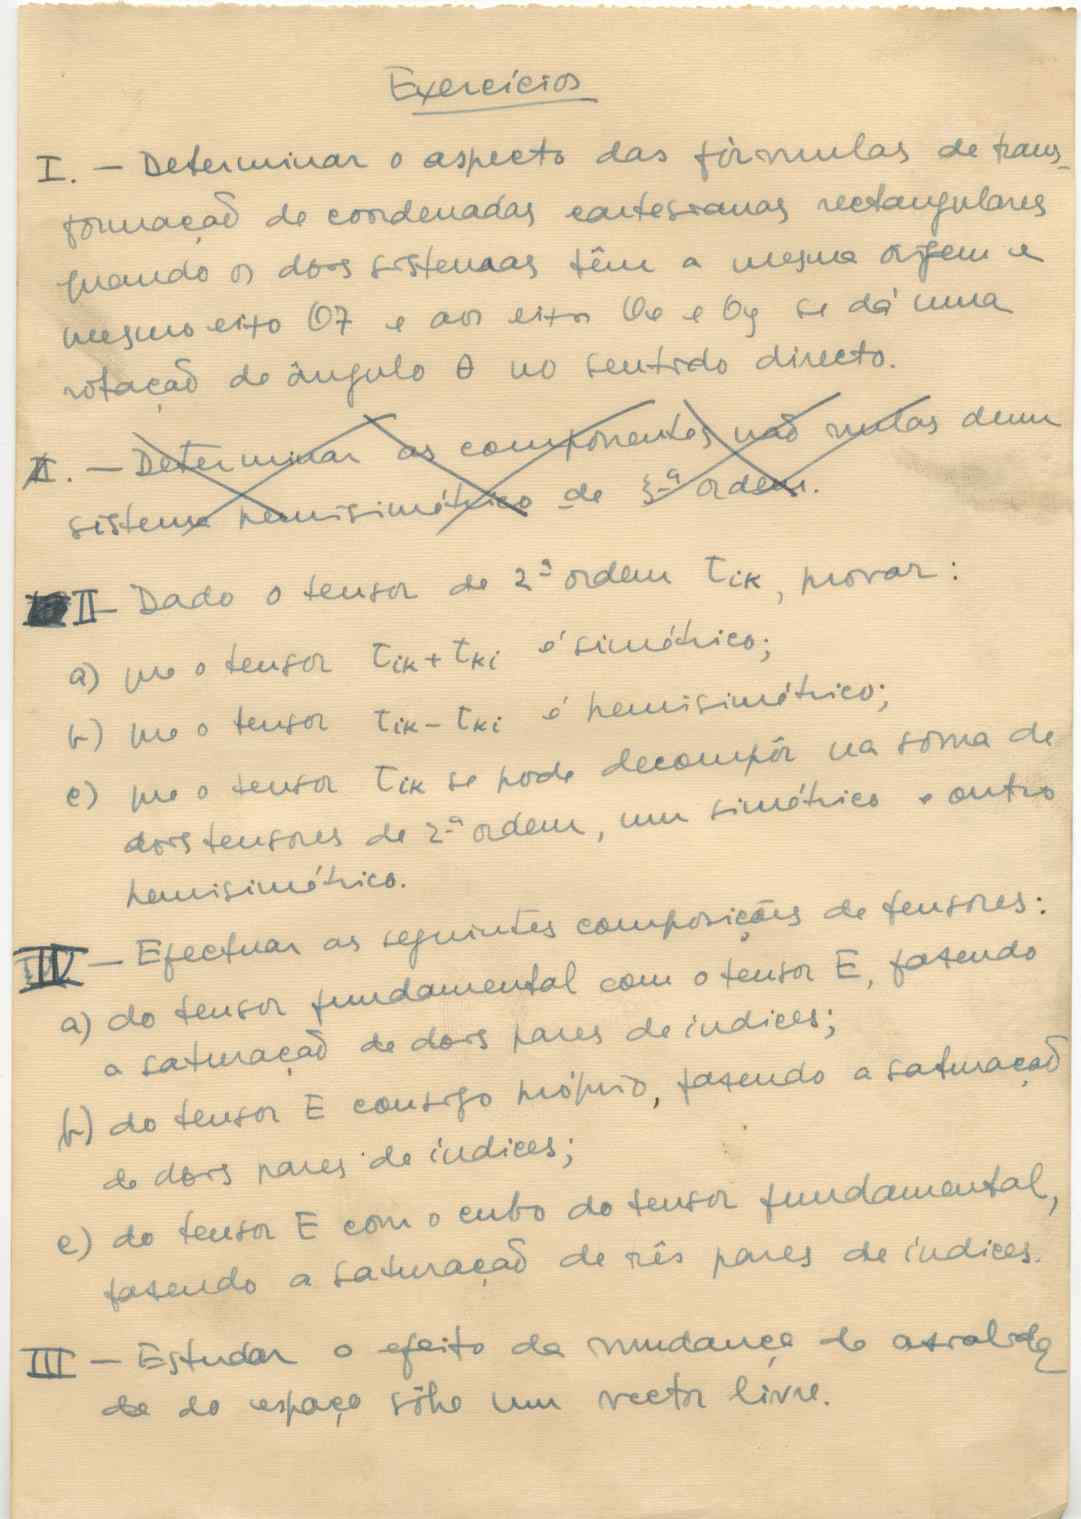 Exercícios
I. — Determinar o aspecto das fórmulas de trans-
formação de coordenadas cartesianas rectangulares
quando os dois sistemas têm a mesma origem e
mesmo eixo Oz e aos eixos Ox e Oy se dá uma
rotação de ângulo θ no sentido directo.
II. — Determinar as componentes não nulas dum
sistema hemisimétrico de 3ª ordem.
II — Dado o tensor de 2ª ordem τik, provar:
a) que o tensor τik + τki é simétrico;
b) que o tensor τik – τki é hemisimétrico;
c) que o tensor τik se pode decompôr na soma de
dois tensores de 2ª ordem, um simétrico e outro
hemisimétrico.
IV — Efectuar as seguintes composições de tensores:
a) do tensor fundamental com o tensor E, fazendo
a saturação de dois pares de índices;
b) do tensor E consigo próprio, fazendo a saturação
de dois pares de índices;
c) do tensor E com o cubo do tensor fundamental,
fazendo a saturação de três pares de índices.
III — Estudar o efeito da mudança de axialida
de do espaço sôbre um vector livre.